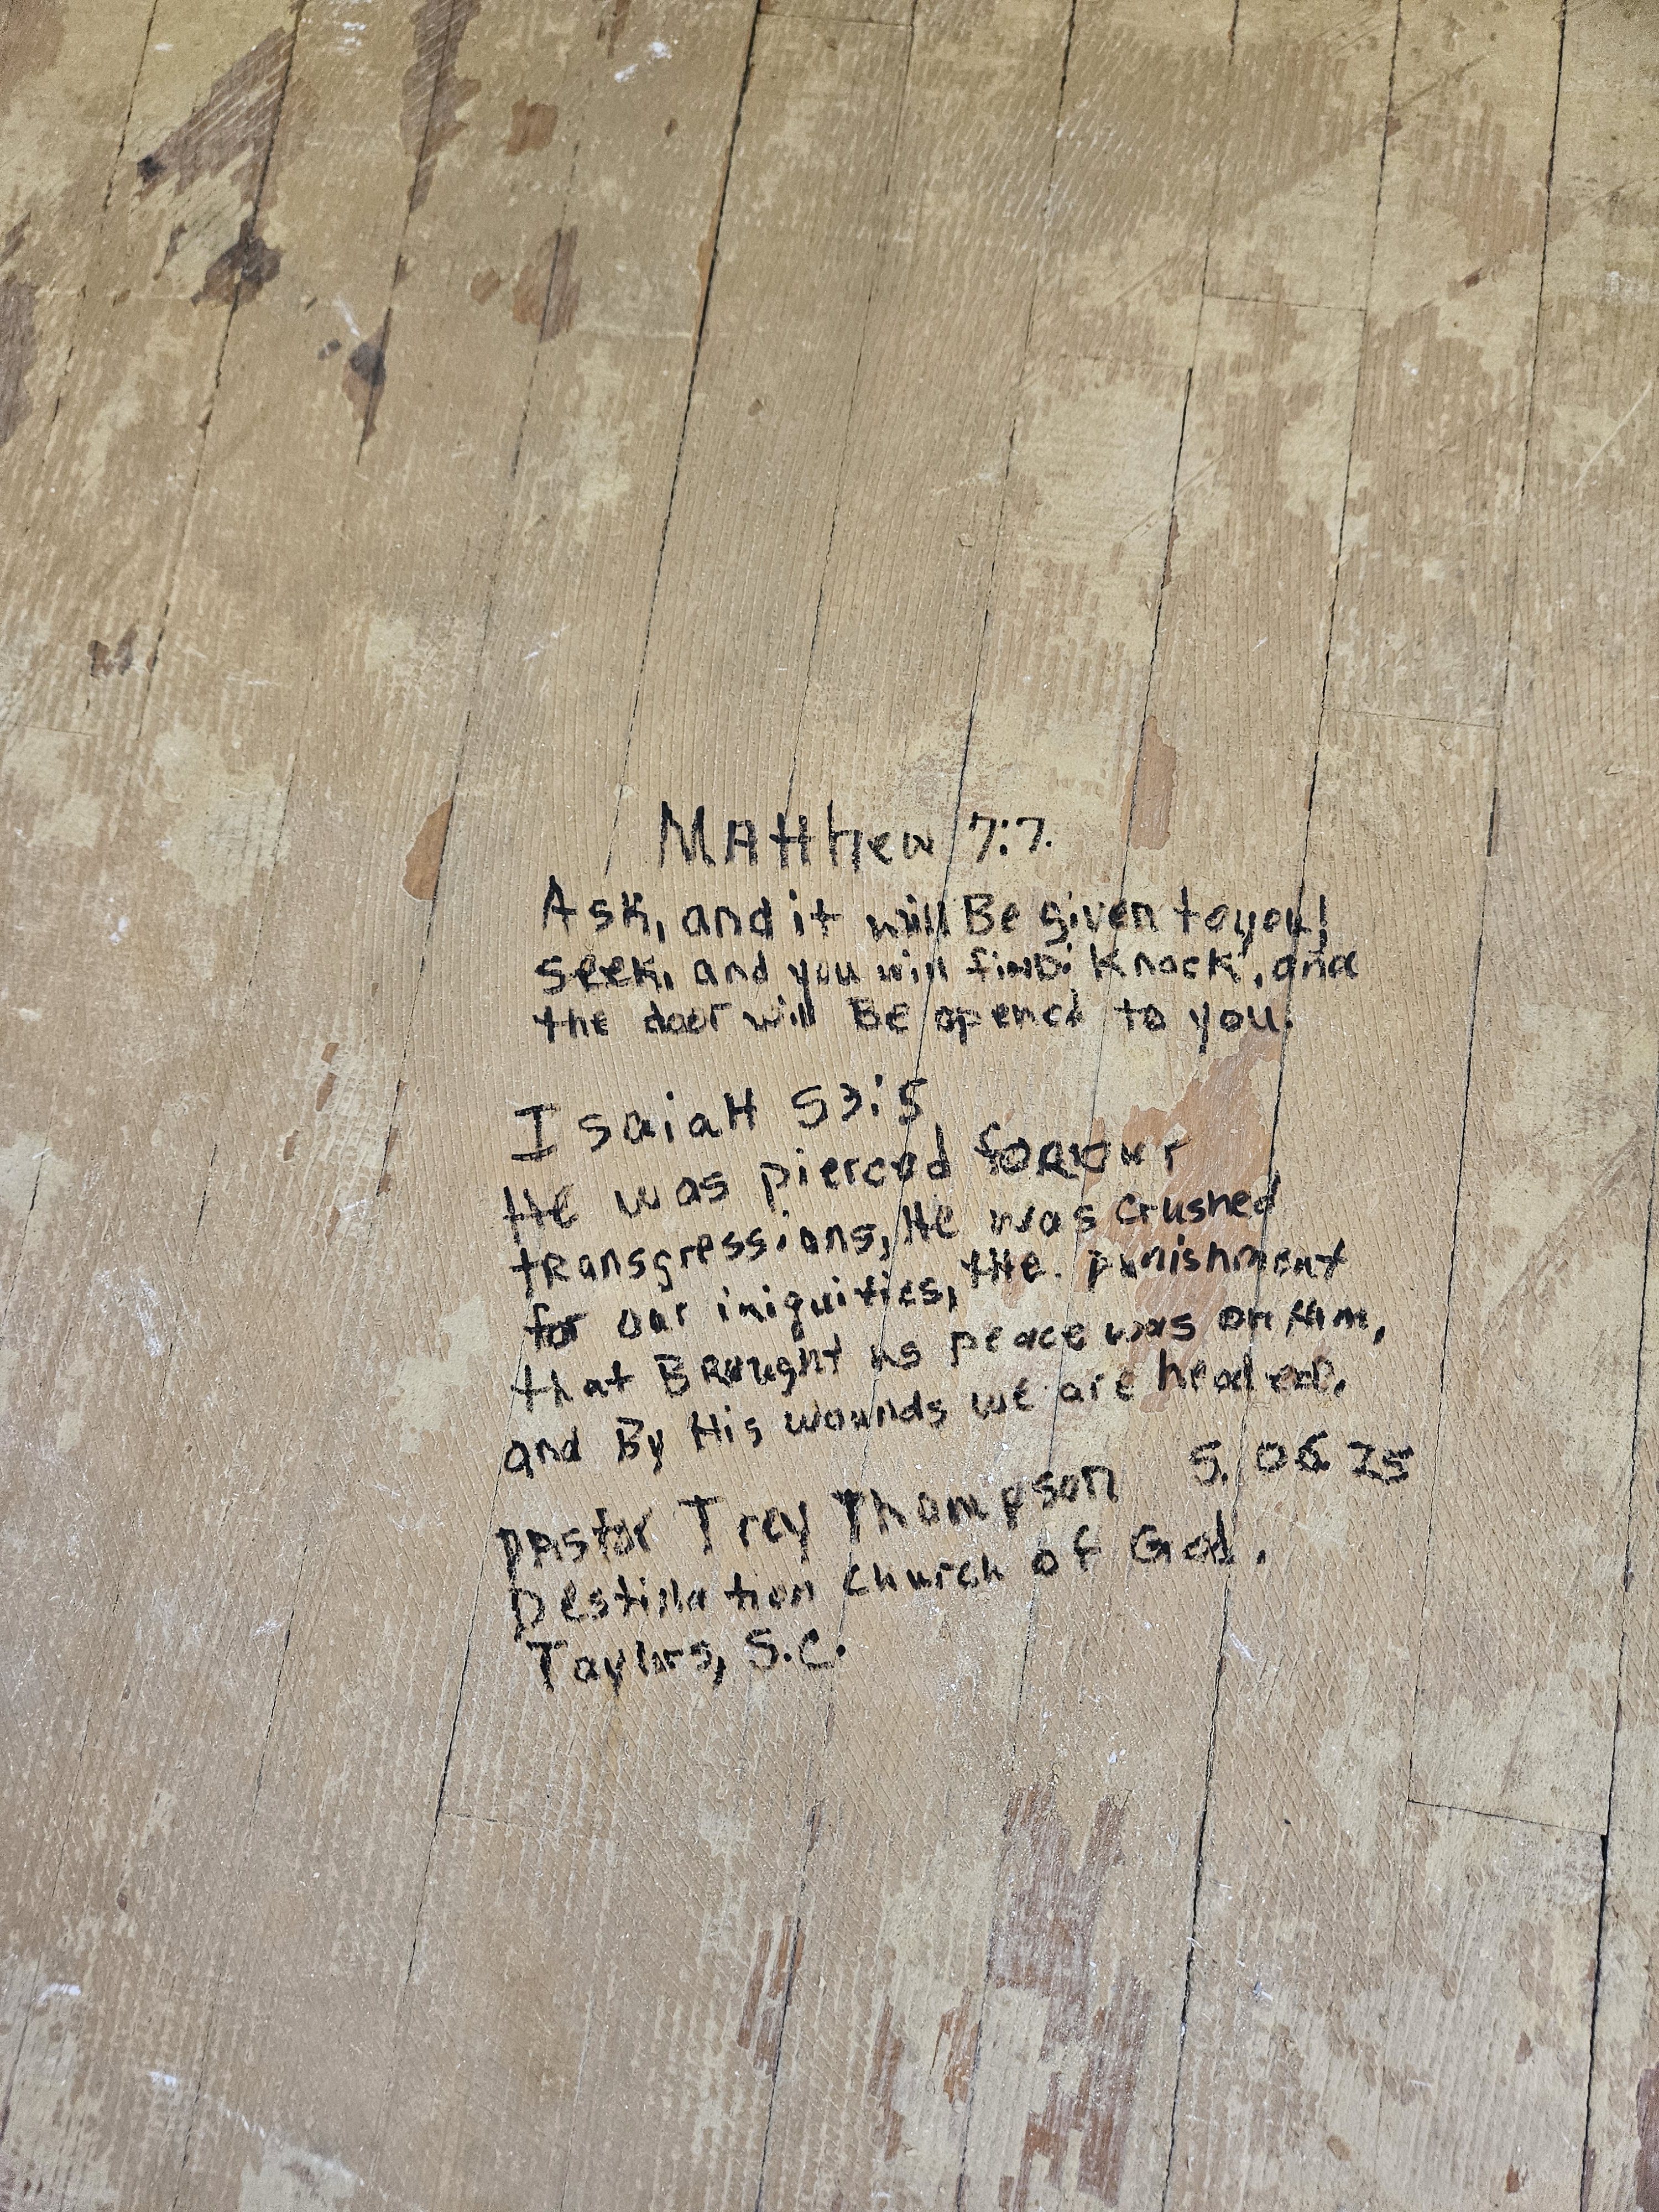 MAtthew 7:7.
Ask, and it will Be given to you!
seek, and you will find: Knock, and
the door will BE opened to you.
IsaiaH 53:5
He was pierced for our
transgressions, He was crushed
for our iniquities, the punishment
that Brought us peace was on Him,
and By His wounds we are healed.
pastor Trey Thompson 5.06 25
Destination church of God.
Taylors, S.C.